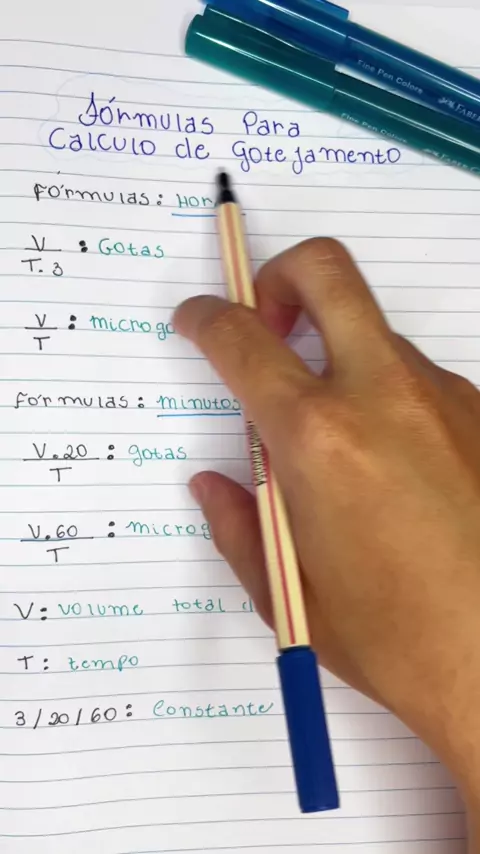 Fine Pen Colors
Fine Pen Colors FABER
Fórmulas Para
Calculo de Gotejamento
Fórmulas:
V/T.3 : Gotas
V/T :
Fórmulas: minutos
V.20/T : gotas
V.60/T :
V: Volume total
T: tempo
3/20/60: Constante